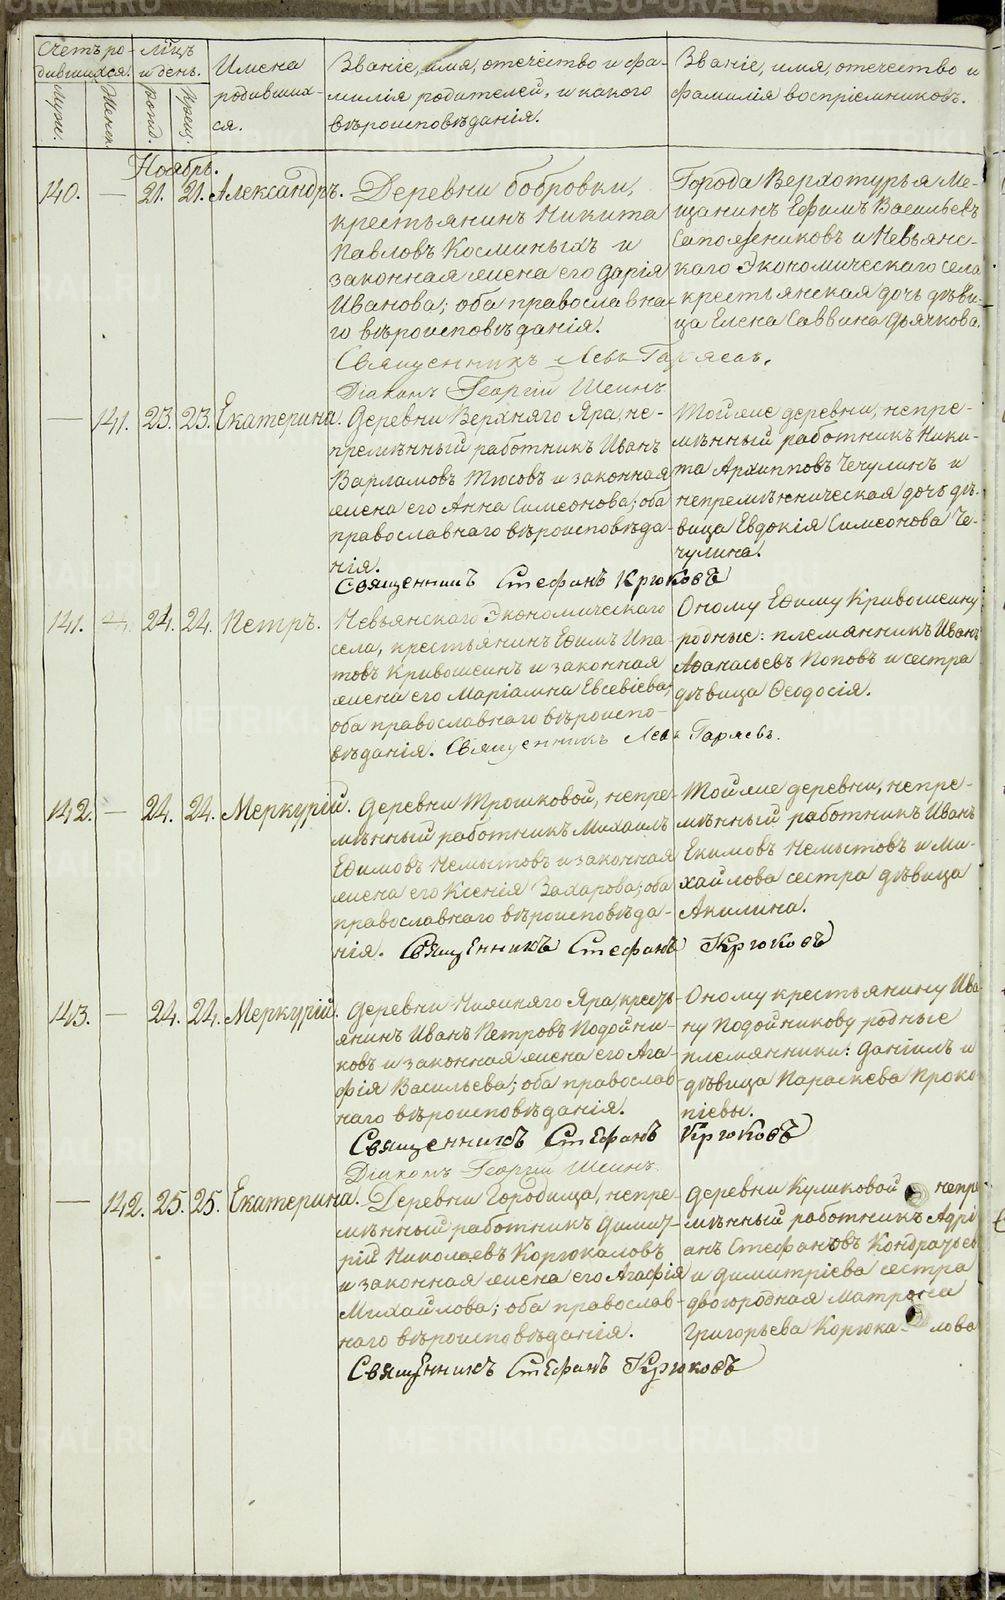 Счетъ ро-
дившихся.
Муж.
Женск.
Мѣцъ
и день.
Рожд.
Крещ.
Имена
родивших-
ся.
Званіе, имя, отечество и фа-
милія родителей, и какого
вѣроисповѣданія.
Званіе, имя, отечество и
фамилія воспріемниковъ.
Ноябрь.
140. — 21. 21. Александръ.
Деревни Бобровки,
крестьянинъ Никита
Павловъ Косминыхъ и
законная жена его Дарія
Иванова; оба православна-
го вѣроисповѣданія.
Города Верхотурья Ме-
щанинъ Ефимъ Васильевъ
Сапожниковъ и Невьянс-
каго Экономическаго села
крестьянская дочь дѣви-
ца Елена Саввина Дьячкова.
Священникъ Левъ Гаряевъ.
Діаконъ Георгій Шеинъ
— 141. 23. 23. Екатерина.
Деревни Верхняго Яра, не-
премѣнный работникъ Иванъ
Варламовъ Тюсовъ и законная
жена его Анна Симеонова; оба
православнаго вѣроисповѣда-
нія.
Той же деревни, непре-
мѣнный работникъ Ники-
та Архипповъ Чечулинъ и
непремѣнническая дочь дѣ-
вица Евдокія Симеонова Че-
чулина.
Священникъ Стефанъ Крюковъ
141. — 24. 24. Петръ.
Невьянскаго Экономическаго
села, крестьянинъ Ефимъ Ипа-
товъ Кривошеинъ и законная
жена его Маріамна Евсевіева;
оба православнаго вѣроиспо-
вѣданія. Священникъ Левъ Гаряевъ.
Оному Ефиму Кривошеину
родные: племянникъ Иванъ
Аѳанасьевъ Поповъ и сестра
дѣвица Ѳеодосія.
142. — 24. 24. Меркурій.
Деревни Трошковой, непре-
мѣнный работникъ Михаилъ
Ефимовъ Немытовъ и законная
жена его Ксенія Захарова; оба
православнаго вѣроисповѣда-
нія. Священникъ Стефанъ Крюковъ
Той же деревни, непре-
мѣнный работникъ Иванъ
Екимовъ Немытовъ и Ми-
хайлова сестра дѣвица
Акилина.
143. — 24. 24. Меркурій.
Деревни Нижняго Яра, кресть-
янинъ Иванъ Петровъ Подойни-
ковъ и законная жена его Ага-
фія Васильева; оба православ-
наго вѣроисповѣданія.
Оному крестьянину Ива-
ну Подойникову родные
племянники: Даніилъ и
дѣвица Параскева Проко-
піевы.
Священникъ Стефанъ Крюковъ
Діаконъ Георгій Шеинъ
— 142. 25. 25. Екатерина.
Деревни Городища, непре-
мѣнный работникъ Димит-
рій Николаевъ Корюкаловъ
и законная жена его Агафія
Михайлова; оба православ-
наго вѣроисповѣданія.
Деревни Куликовой непре
мѣнный работникъ Адрі
анъ Стефановъ Кондратьев
и Димитріева сестра
двоюродная Матрона
Григорьева Корюка- лова
Священникъ Стефанъ Крюковъ
METRIKI.GASO-URAL.RU